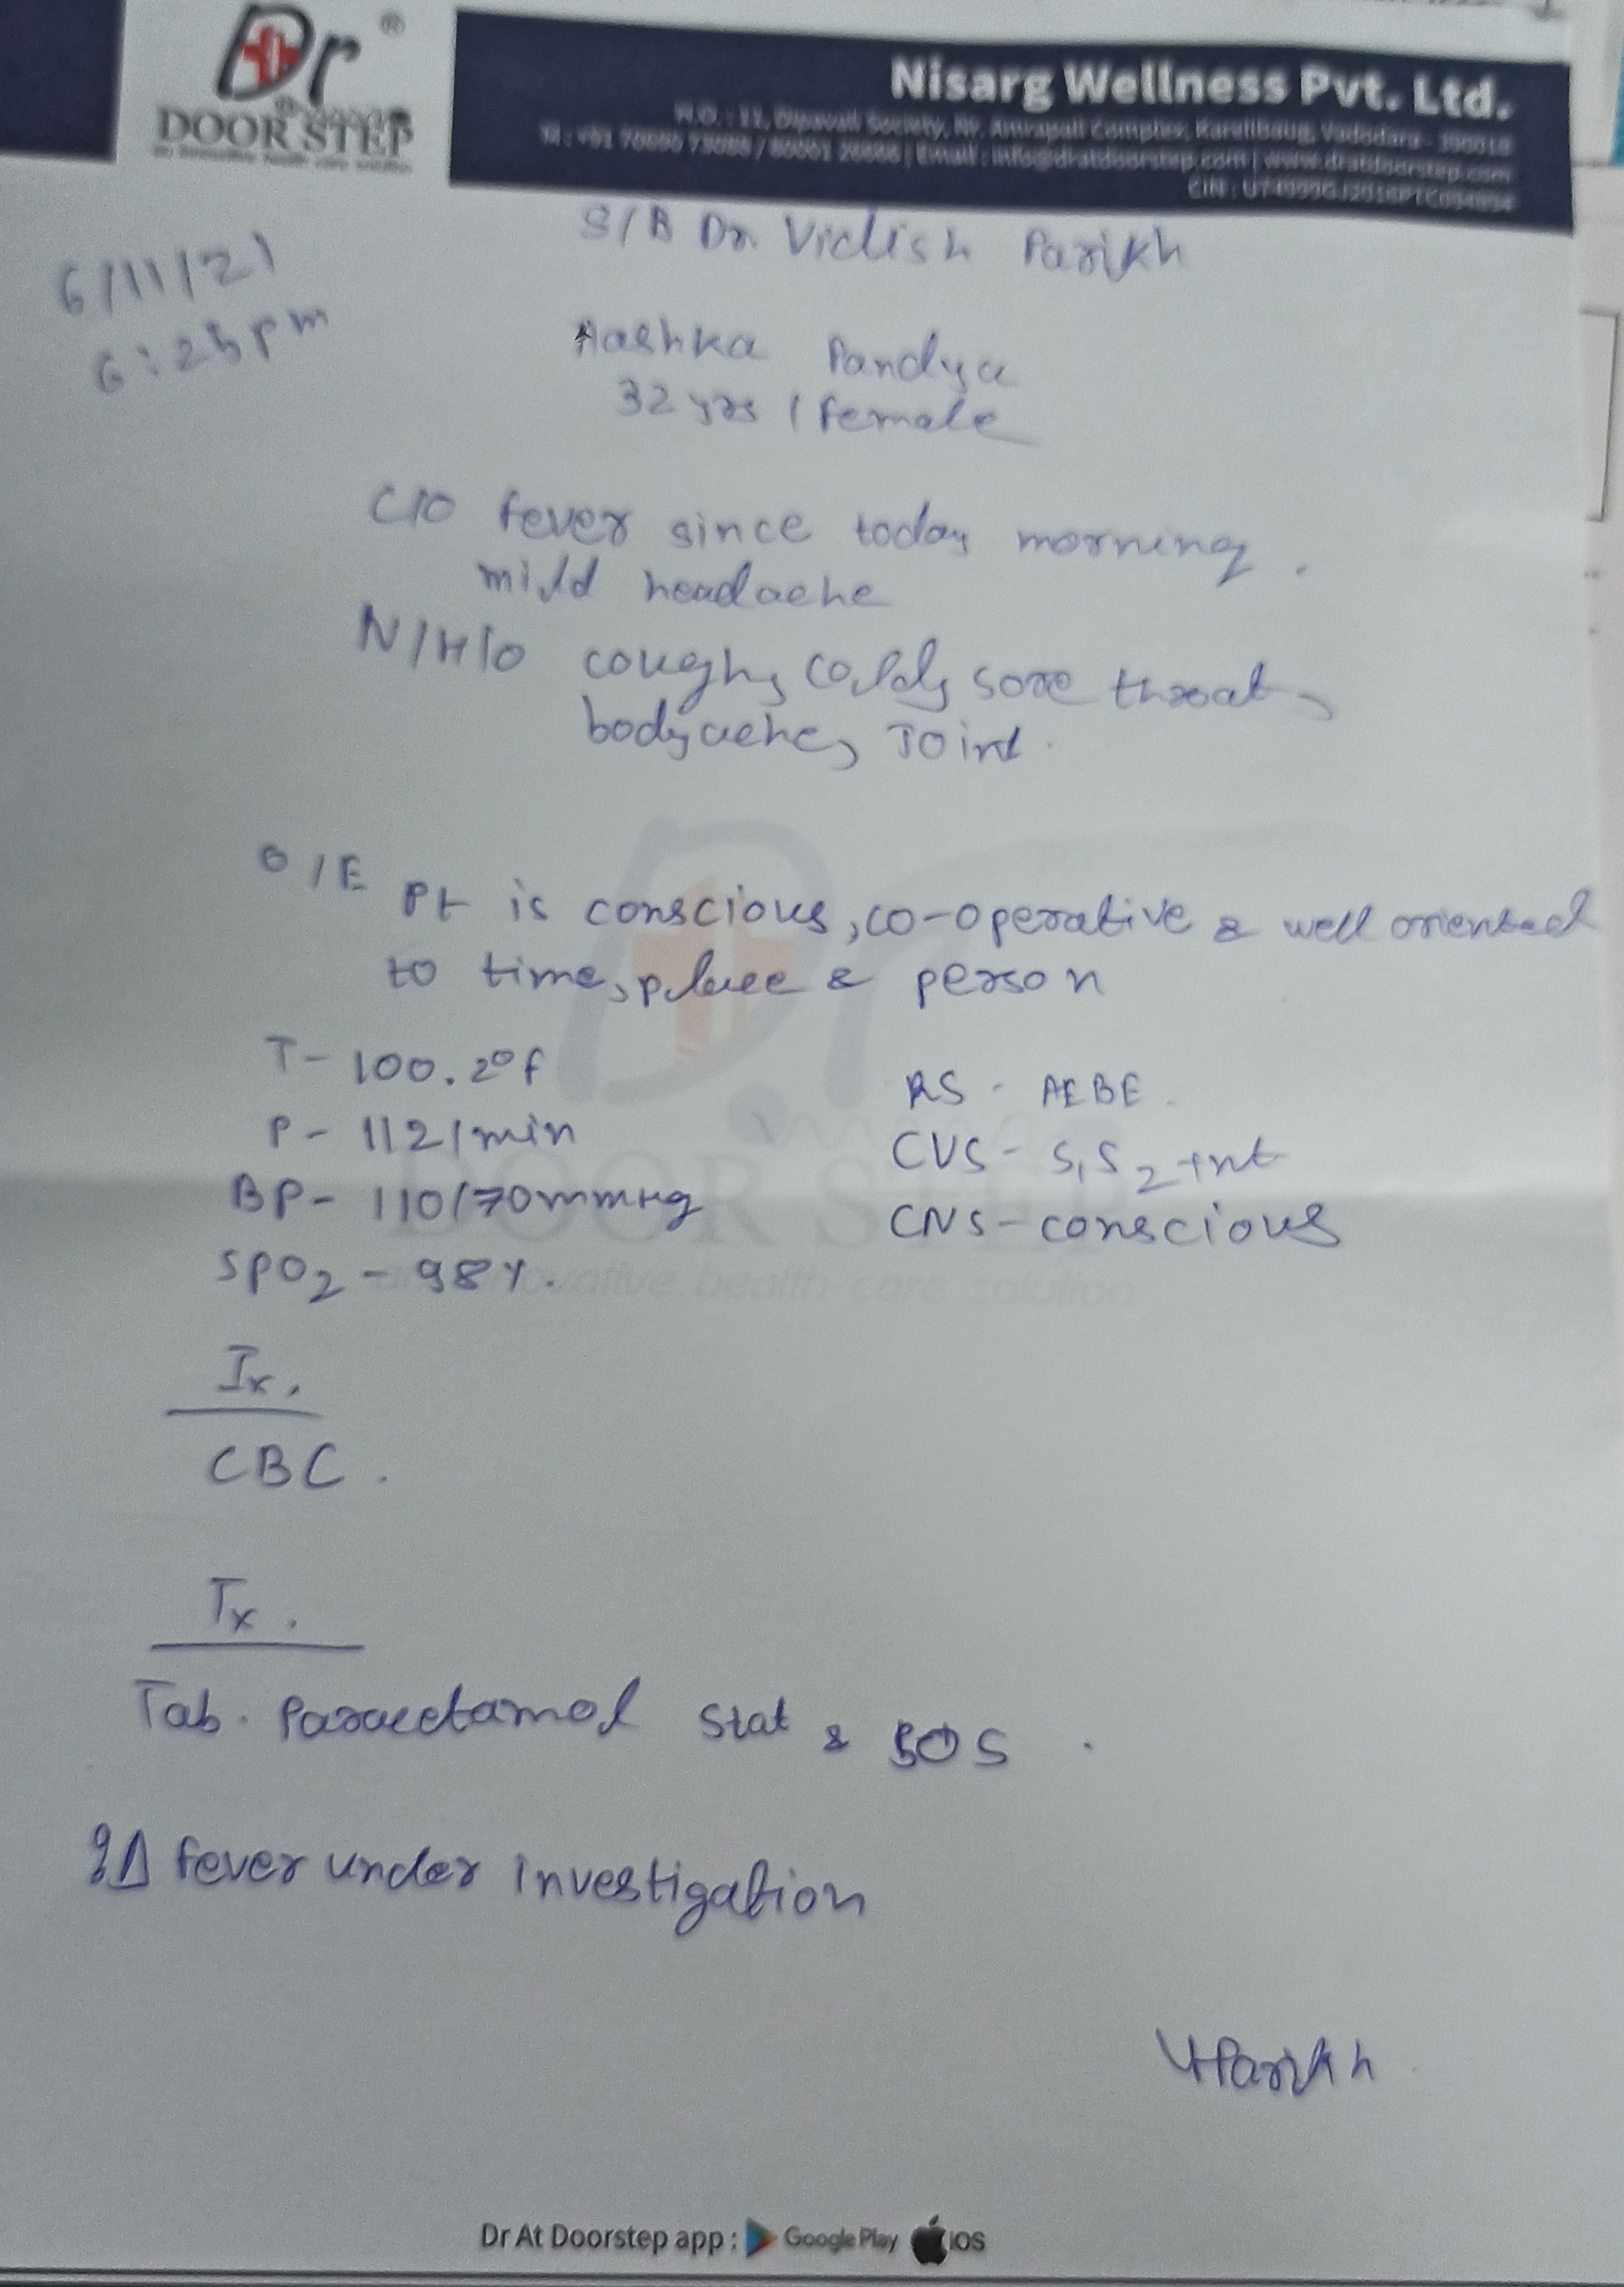 Dr ®
@ Doorstep
DOOR STEP
Nisarg Wellness Pvt. Ltd.
H.O. : 11, Dipavali Society, Nr. Amrapali Complex, Karelibaug, Vadodara - 390018
Email : info@dratdoorstep.com | www.dratdoorstep.com
S/B Dr. Vidish Parikh
6/11/21
6:25pm
Aashka Pandya
32 yrs / Female
C/O fever since today morning.
mild headache
N/H/O cough, cold, sore throat,
bodyache, Joint.
O/E Pt is conscious, co-operative & well oriented
to time, place & person
T- 100.2°f
RS - AEBE.
P- 112/min
CVS- S1S2 +nt
BP- 110/70mmHg
CNS- conscious
SPO2 - 98%.
Ix.
CBC.
Tx.
Tab. Paracetamol stat & SOS.
?Δ fever under investigation
Parikh
DOOR STEP
innovative health care solution
Dr At Doorstep app : Google Play iOS